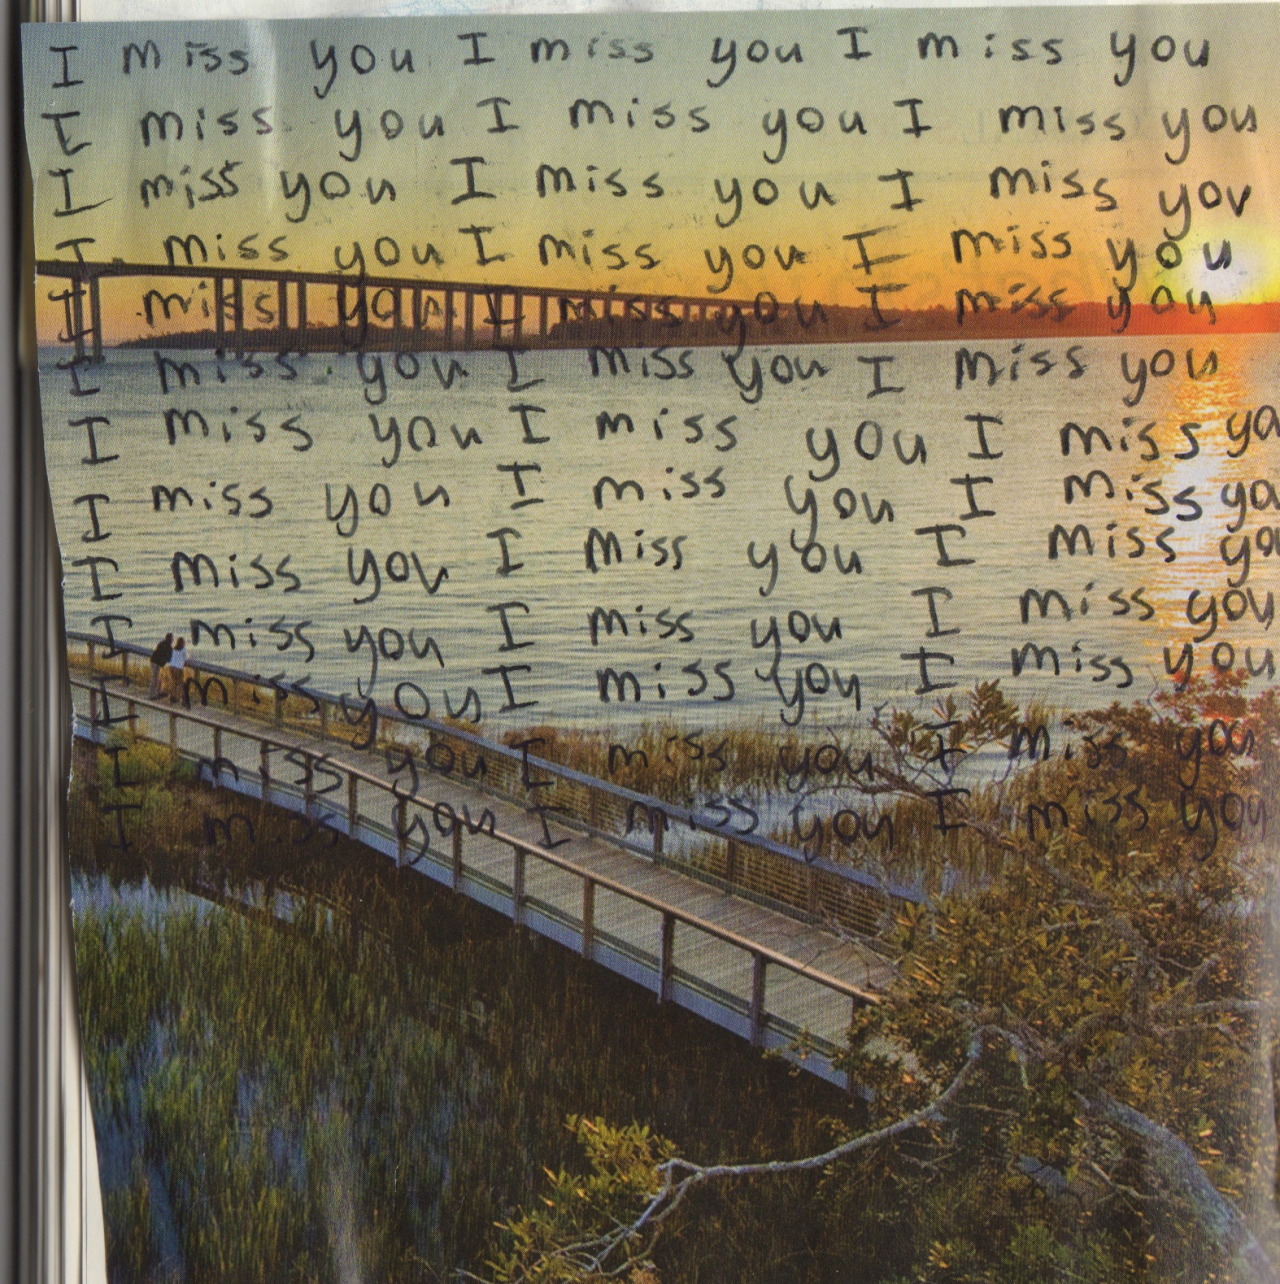 I miss you I miss you I miss you
I miss you I miss you I miss you
I miss you I miss you I miss you
I miss you I miss you I miss you
I miss you I miss you I miss you
I miss you I miss you I miss you
I miss you I miss you I miss you
I miss you I miss you I miss you
I miss you I miss you I miss you
I miss you I miss you I miss you
I miss you I miss you I miss you
I miss you I miss you I miss you
I miss you I miss you I miss you